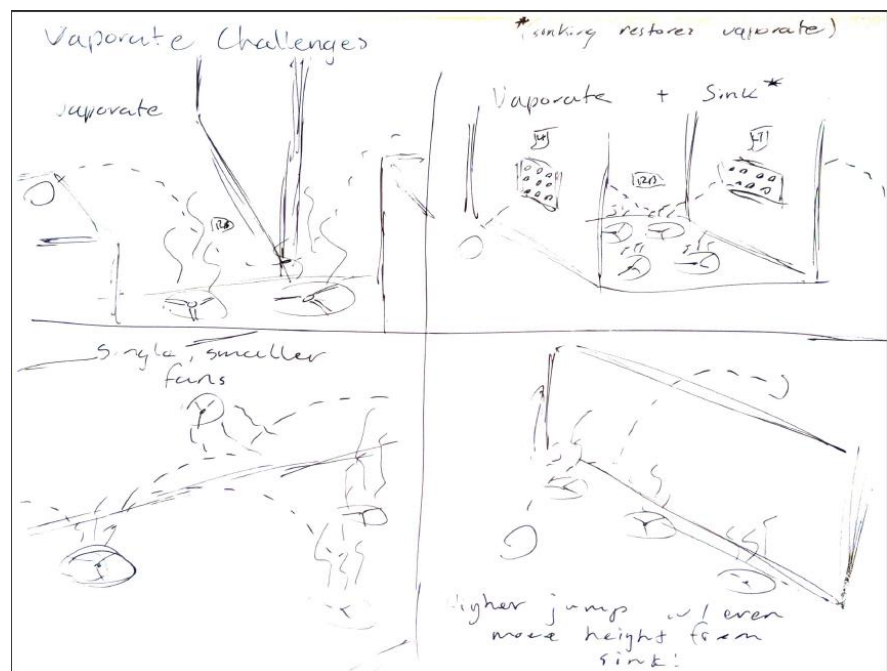 Vaporate Challenges
*(sinking restores vaporate)
Vaporate
Vaporate + Sink*
LT
LT
RB
RB
Single, smaller
fans
Higher jump w/ even
more height from
sink!